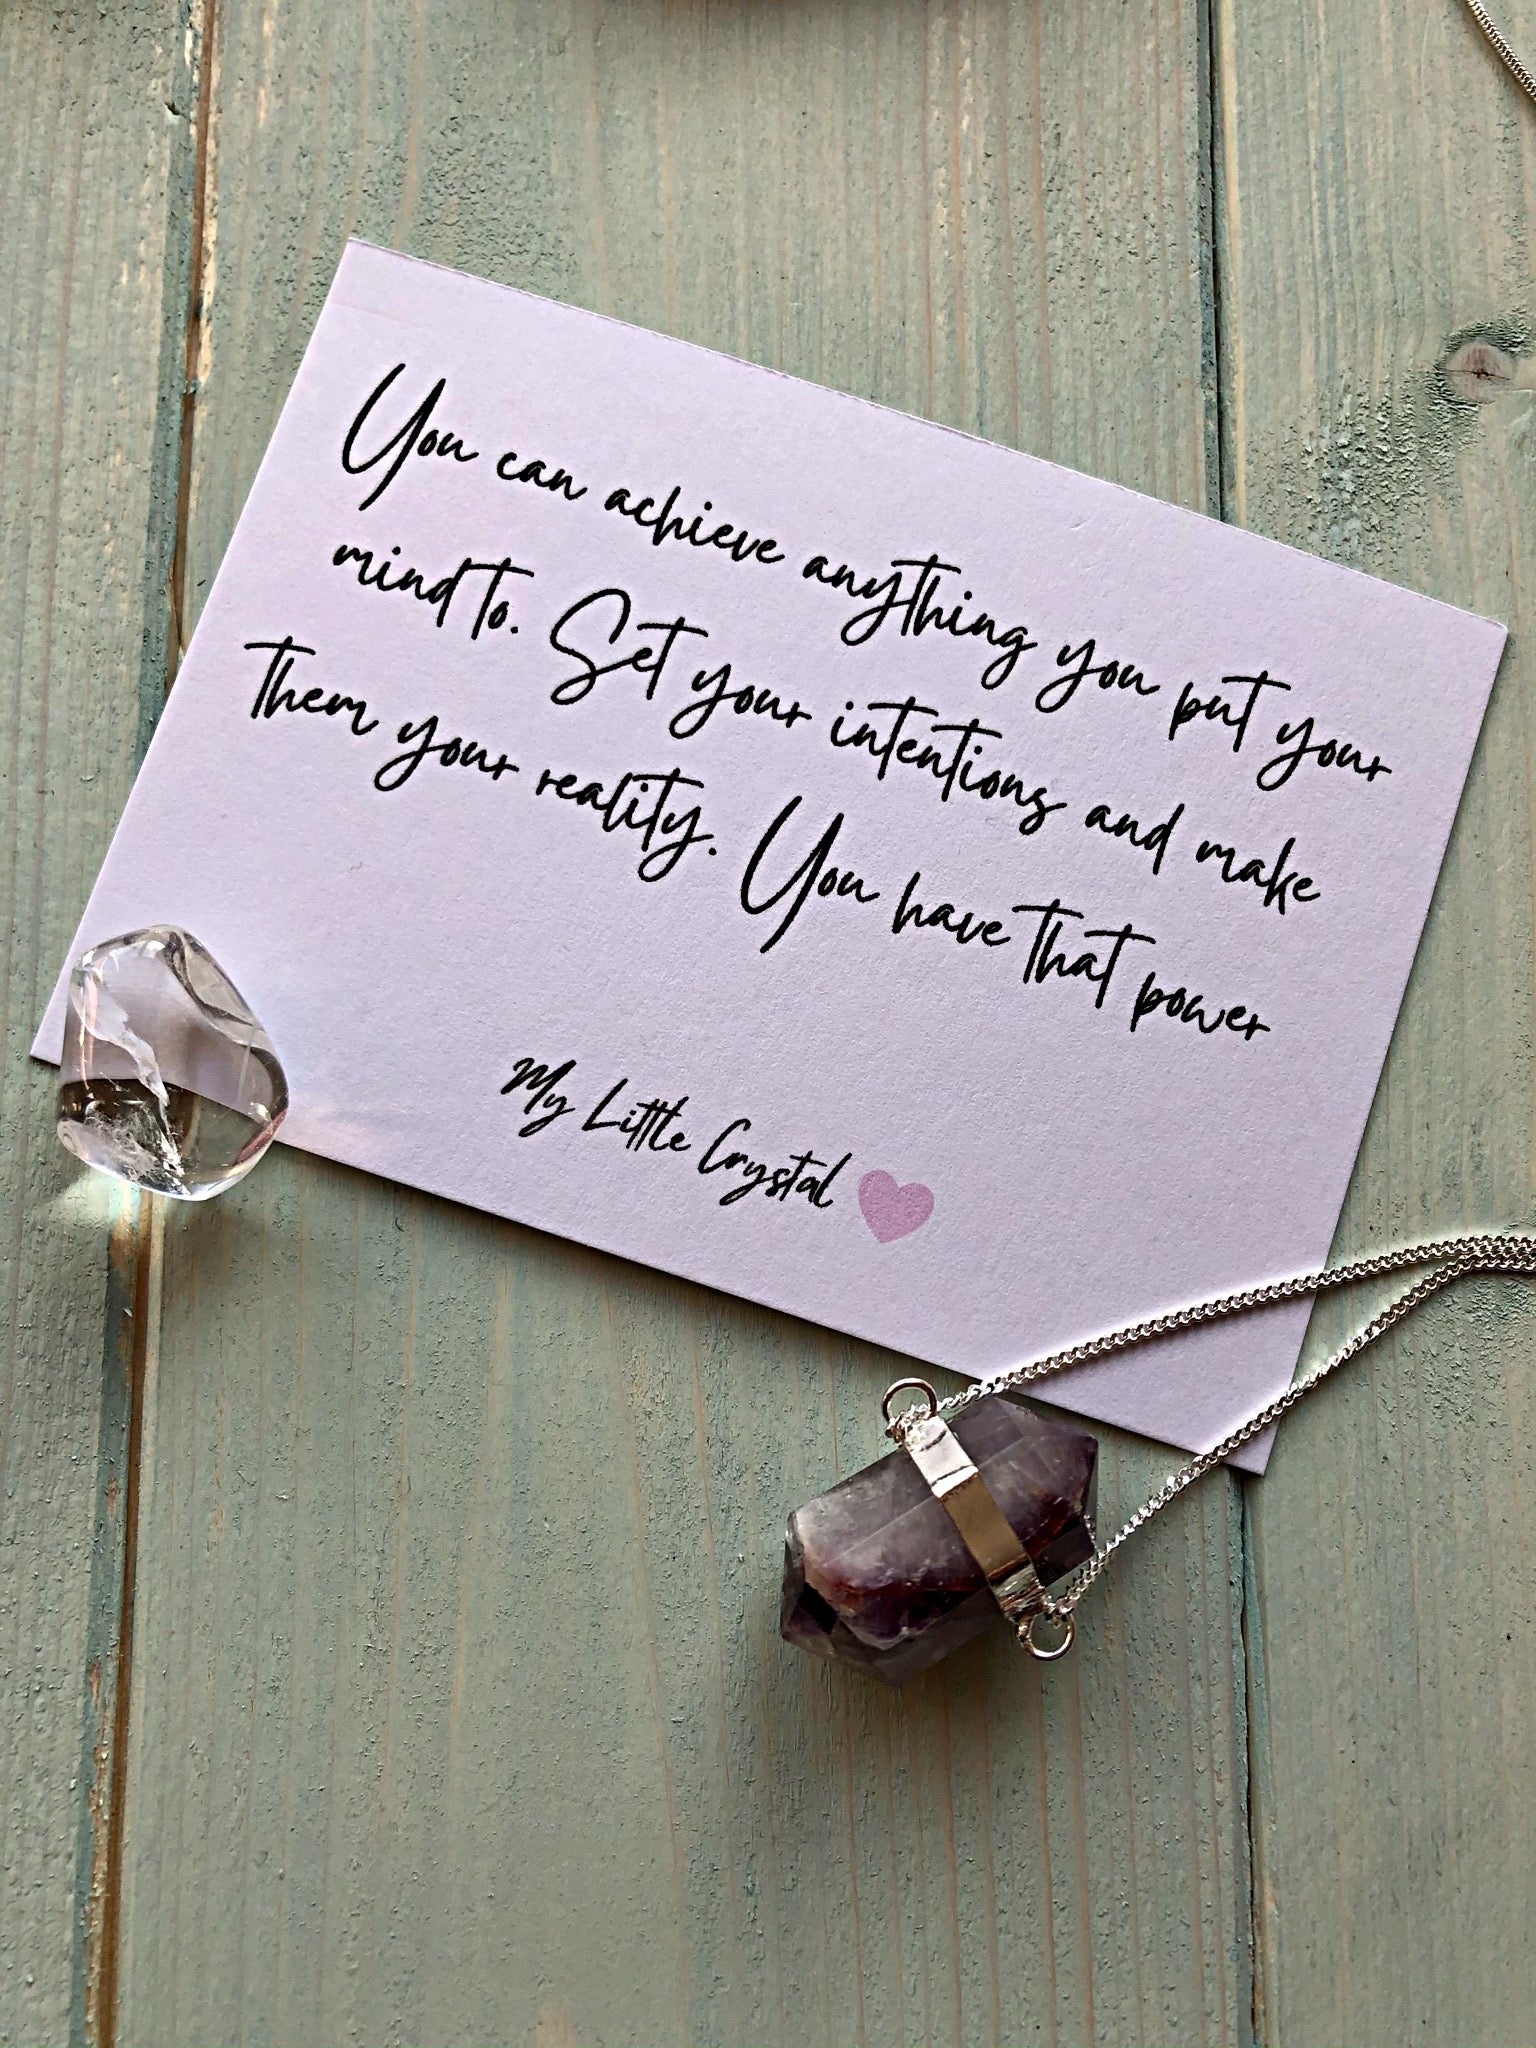 You can achieve anything you put your
mind to. Set your intentions and make
them your reality. You have that power
My Little Crystal